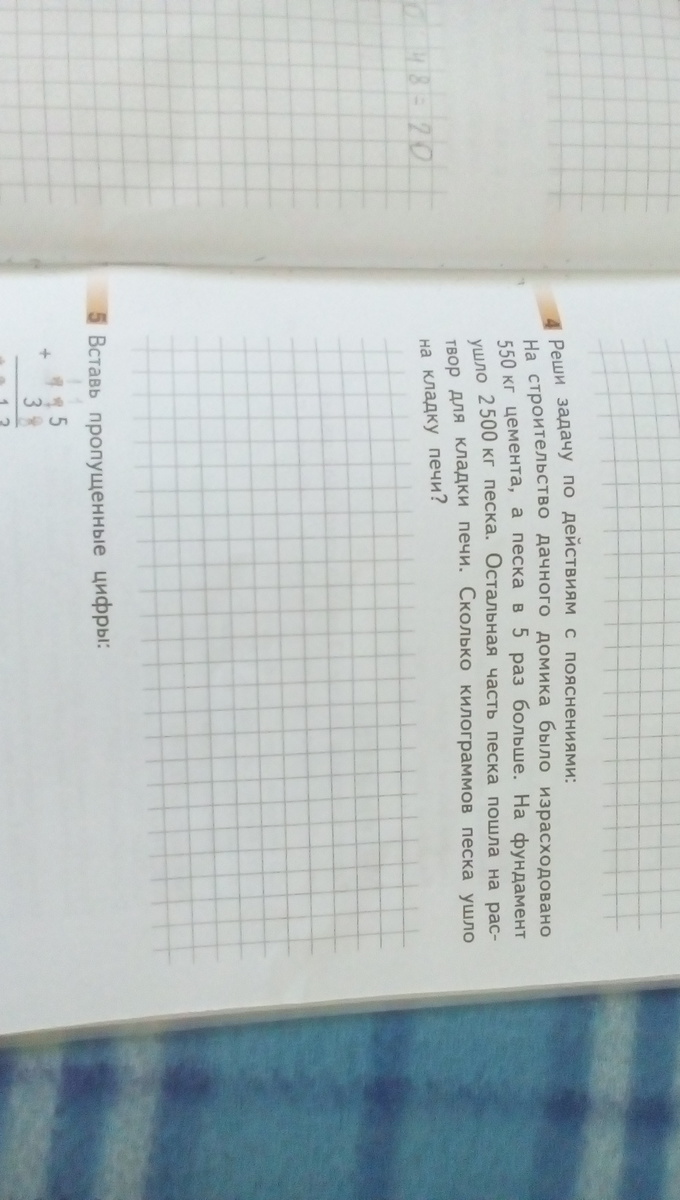 48=20
4 Реши задачу по действиям с пояснениями:
На строительство дачного домика было израсходовано
550 кг цемента, а песка в 5 раз больше. На фундамент
ушло 2500 кг песка. Остальная часть песка пошла на рас-
твор для кладки печи. Сколько килограммов песка ушло
на кладку печи?
5 Вставь пропущенные цифры:
+ **5
3*